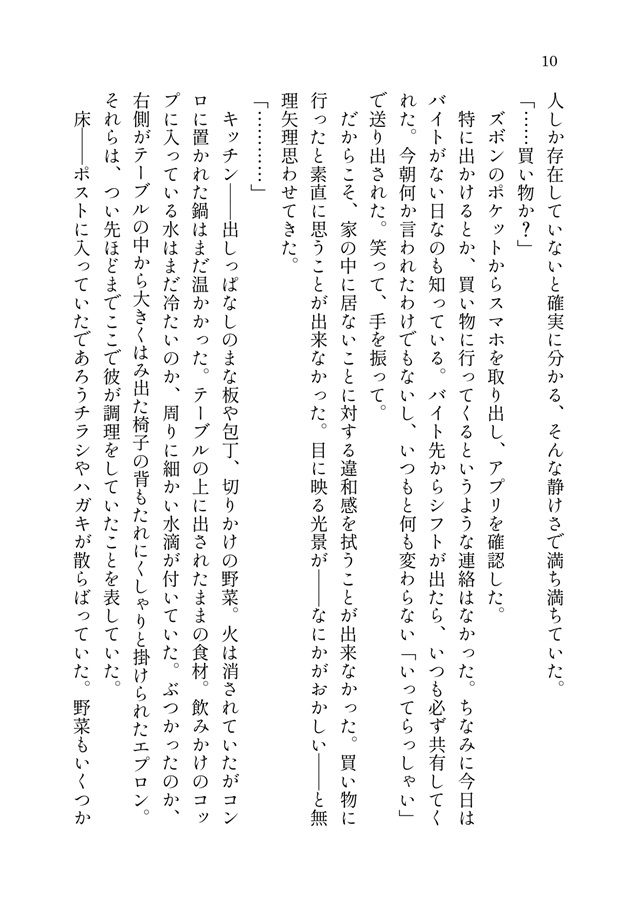 10
人しか存在していないと確実に分かる、そんな静けさで満ち満ちていた。
「……買い物か？」
ズボンのポケットからスマホを取り出し、アプリを確認した。
特に出かけるとか、買い物に行ってくるというような連絡はなかった。ちなみに今日は
バイトがない日なのも知っている。バイト先からシフトが出たら、いつも必ず共有してく
れた。今朝何か言われたわけでもないし、いつもと何も変わらない「いってらっしゃい」
で送り出された。笑って、手を振って。
だからこそ、家の中に居ないことに対する違和感を拭うことが出来なかった。買い物に
行ったと素直に思うことが出来なかった。目に映る光景が――なにかがおかしい――と無
理矢理思わせてきた。
「…………」
キッチン――出しっぱなしのまな板や包丁、切りかけの野菜。火は消されていたがコン
ロに置かれた鍋はまだ温かかった。テーブルの上に出されたままの食材。飲みかけのコッ
プに入っている水はまだ冷たいのか、周りに細かい水滴が付いていた。ぶつかったのか、
右側がテーブルの中から大きくはみ出た椅子の背もたれにくしゃりと掛けられたエプロン。
それらは、つい先ほどまでここで彼が調理をしていたことを表していた。
床――ポストに入っていたであろうチラシやハガキが散らばっていた。野菜もいくつか